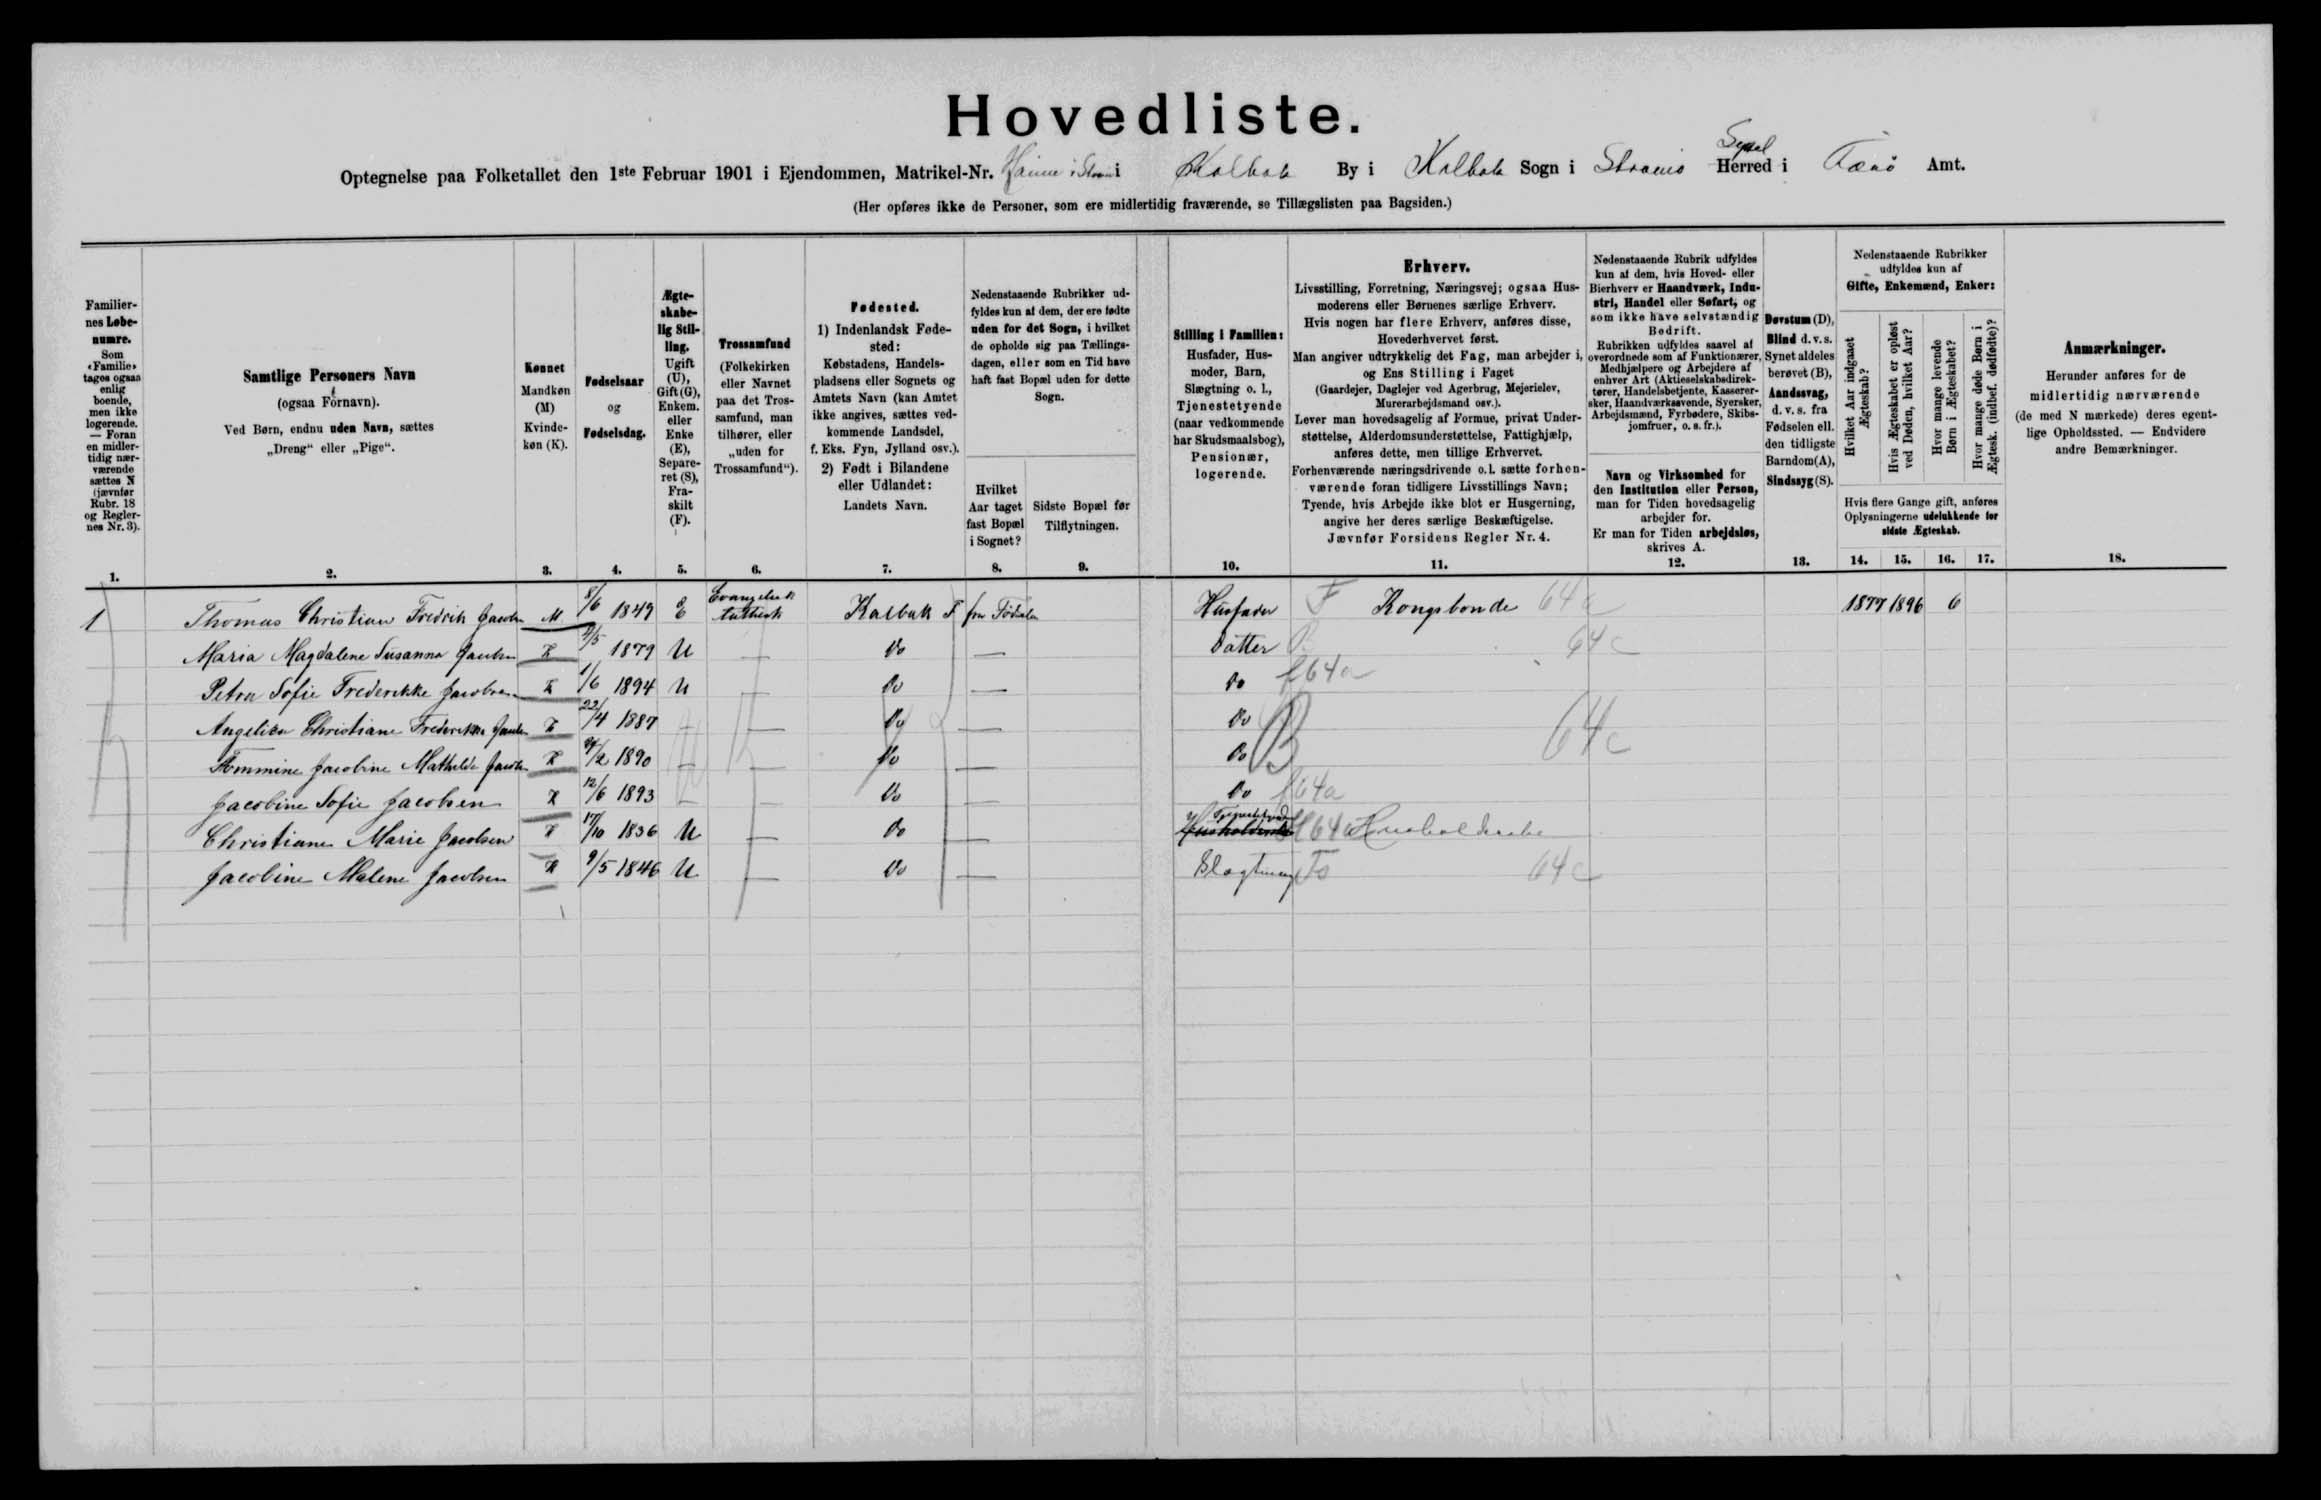 Hovedliste.
Optegnelse paa Folketallet den 1ste Februar 1901 i Ejendommen, Matrikel-Nr. i Kalbak By i Kalbak Sogn i Strømø Syssel Herred i Færø Amt.
(Her opføres ikke de Personer, som ere midlertidig fraværende, se Tillægslisten paa Bagsiden.)
Familier-
nes Løbe-
numre.
Som
«Familie»
tages ogsaa
enlig
boende,
men ikke
logerende.
— Foran
en midler-
tidig nær-
værende
sættes N
(jævnfør
Rubr. 18
og Regler-
nes Nr. 3).
1.
Samtlige Personers Navn
(ogsaa Fornavn).
Ved Børn, endnu uden Navn, sættes
„Dreng“ eller „Pige“.
2.
Kønnet
Mandkøn
(M)
Kvinde-
køn (K).
3.
Fødselsaar
og
Fødselsdag.
4.
Ægte-
skabe-
lig Stil-
ling.
Ugift
(U),
Gift (G),
Enkem.
eller
Enke
(E),
Separe-
ret (S),
Fra-
skilt
(F).
5.
Trossamfund
(Folkekirken
eller Navnet
paa det Tros-
samfund, man
tilhører, eller
„uden for
Trossamfund“).
6.
Fødested.
1) Indenlandsk Føde-
sted:
Købstadens, Handels-
pladsens eller Sognets og
Amtets Navn (kan Amtet
ikke angives, sættes ved-
kommende Landsdel,
f. Eks. Fyn, Jylland osv.).
2) Født i Bilandene
eller Udlandet:
Landets Navn.
7.
Nedenstaaende Rubrikker ud-
fyldes kun af dem, der ere fødte
uden for det Sogn, i hvilket
de opholde sig paa Tællings-
dagen, eller som en Tid have
haft fast Bopæl uden for dette
Sogn.
Hvilket
Aar taget
fast Bopæl
i Sognet?
8.
Sidste Bopæl før
Tilflytningen.
9.
Stilling i Familien:
Husfader, Hus-
moder, Barn,
Slægtning o. l.,
Tjenestetyende
(naar vedkommende
har Skudsmaalsbog),
Pensionær,
logerende.
10.
Erhverv.
Livsstilling, Forretning, Næringsvej; ogsaa Hus-
moderens eller Børnenes særlige Erhverv.
Hvis nogen har flere Erhverv, anføres disse,
Hovederhvervet først.
Man angiver udtrykkelig det Fag, man arbejder i,
og Ens Stilling i Faget
(Gaardejer, Daglejer ved Agerbrug, Mejerielev,
Murerarbejdsmand osv.).
Lever man hovedsagelig af Formue, privat Under-
støttelse, Alderdomsunderstøttelse, Fattighjælp,
anføres dette, men tillige Erhvervet.
Forhenværende næringsdrivende o. l. sætte forhen-
værende foran tidligere Livsstillings Navn;
Tyende, hvis Arbejde ikke blot er Husgerning,
angive her deres særlige Beskæftigelse.
Jævnfør Forsidens Regler Nr. 4.
11.
Nedenstaaende Rubrik udfyldes
kun af dem, hvis Hoved- eller
Bierhverv er Haandværk, Indu-
stri, Handel eller Søfart, og
som ikke have selvstændig
Bedrift.
Rubrikken udfyldes saavel af
overordnede som af Funktionærer,
Medhjælpere og Arbejdere af
enhver Art (Aktieselskabsdirek-
tører, Handelsbetjente, Kasserer-
sker, Haandværkssvende, Syersker,
Arbejdsmænd, Fyrbødere, Skibs-
jomfruer, o. s. fr.).
Navn og Virksomhed for
den Institution eller Person,
man for Tiden hovedsagelig
arbejder for.
Er man for Tiden arbejdsløs,
skrives A.
12.
Døvstum (D),
Blind d. v. s.
Synet aldeles
berøvet (B),
Aandssvag,
d. v. s. fra
Fødselen ell.
den tidligste
Barndom (A),
Sindssyg (S).
13.
Nedenstaaende Rubrikker
udfyldes kun af
Gifte, Enkemænd, Enker:
Hvilket Aar indgaaet
Ægteskab?
Hvis Ægteskabet er opløst
ved Døden, hvilket Aar?
Hvor mange levende
Børn i Ægteskabet?
Hvor mange døde Børn i
Ægtesk. (indbef. dødfødte)?
Hvis flere Gange gift, anføres
Oplysningerne udelukkende for
sidste Ægteskab.
14. 15. 16. 17.
Anmærkninger.
Herunder anføres for de
midlertidig nærværende
(de med N mærkede) deres egent-
lige Opholdssted. — Endvidere
andre Bemærkninger.
18.
1 Thomas Christian Fredrik Jacobsen M 8/6 1849 E Evangelisk luthersk Kalbak F fra Fødselen Husfader F Kongsbonde 64a 1877 1896 6
Maria Magdalene Susanna Jacobsen K 4/5 1879 U — Do — Datter 64c
Petra Sofie Frederikke Jacobsen K 1/6 1894 U — Do — Do f64a
Angelica Christiane Frederikke Jacobsen K 22/4 1887 — — Do — Do B 64c
Jacobine Mathilde Jacobsen K 1890 — — Do — Do
Jacobine Sofie Jacobsen K 12/6 1893 — — Do — Do f64a
Christiane Marie Jacobsen K 17/10 1836 U — Do — Husholderske 64a Husholderske
Jacobine Malene Jacobsen K 9/5 1846 U — Do — Slægtning To 64c